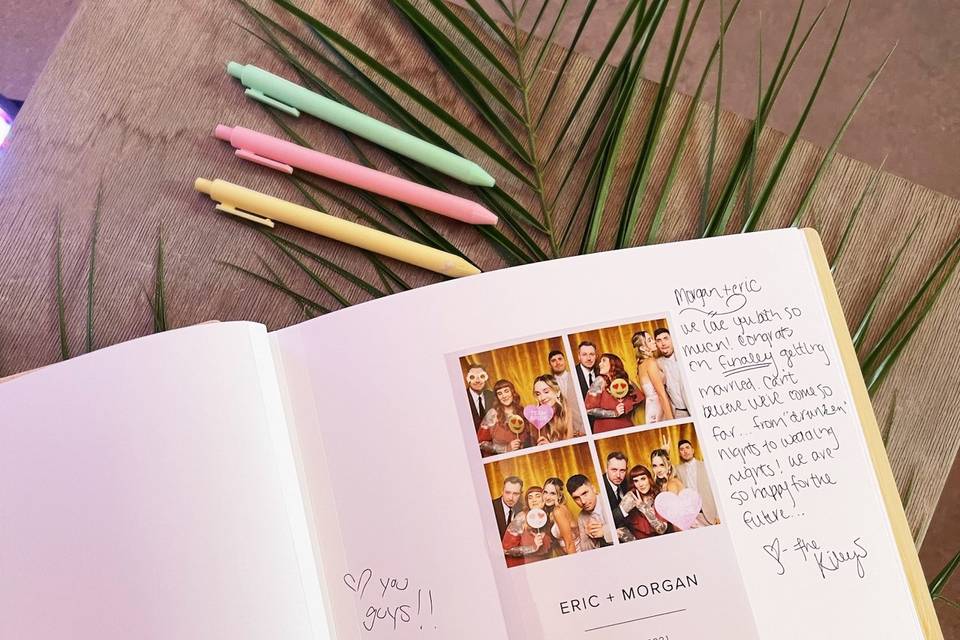 Morgan + eric
we love you both so
much! congrats
on finally getting
married. can't
believe we've come so
far... from "drunken"
nights to wedding
nights! we are
so happy for the
future...
♡ - the
♡ you
guys!!
ERIC + MORGAN
2021